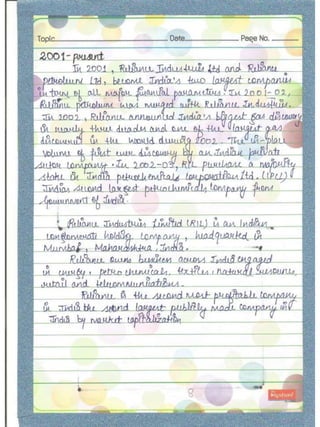 Topic Date Page No.
2001-present
In 2001, Reliance Industries Ltd and Reliance
petroleum Ltd, become India's two largest companies
in term of all major financial parameters. In 2001-02,
Reliance petroleum was merged with Reliance Industries.
In 2002, Reliance announced India's biggest gas discovery
in nearly three decades and one of the largest gas
discoveries in the world during 2002. The in-place
volume of first ever discovery by an Indian private
sector company. In 2002-03, RIL purchase a majority
stake in India petrochemicals corporation Ltd. (IPCL)
Indian second largest petrochemicals company from
Government of India.
Reliance Industries Limited (RIL) is an Indian
conglomerate holding company, headquarted in
Mumbai, Maharashtra, India.
Reliance owns business across India engaged
in energy, petrochemicals, textiles, natural resource,
retail and telecommunications.
Reliance is the second most profitable company
in India the second largest publicly made company in
India by market capitalization
8